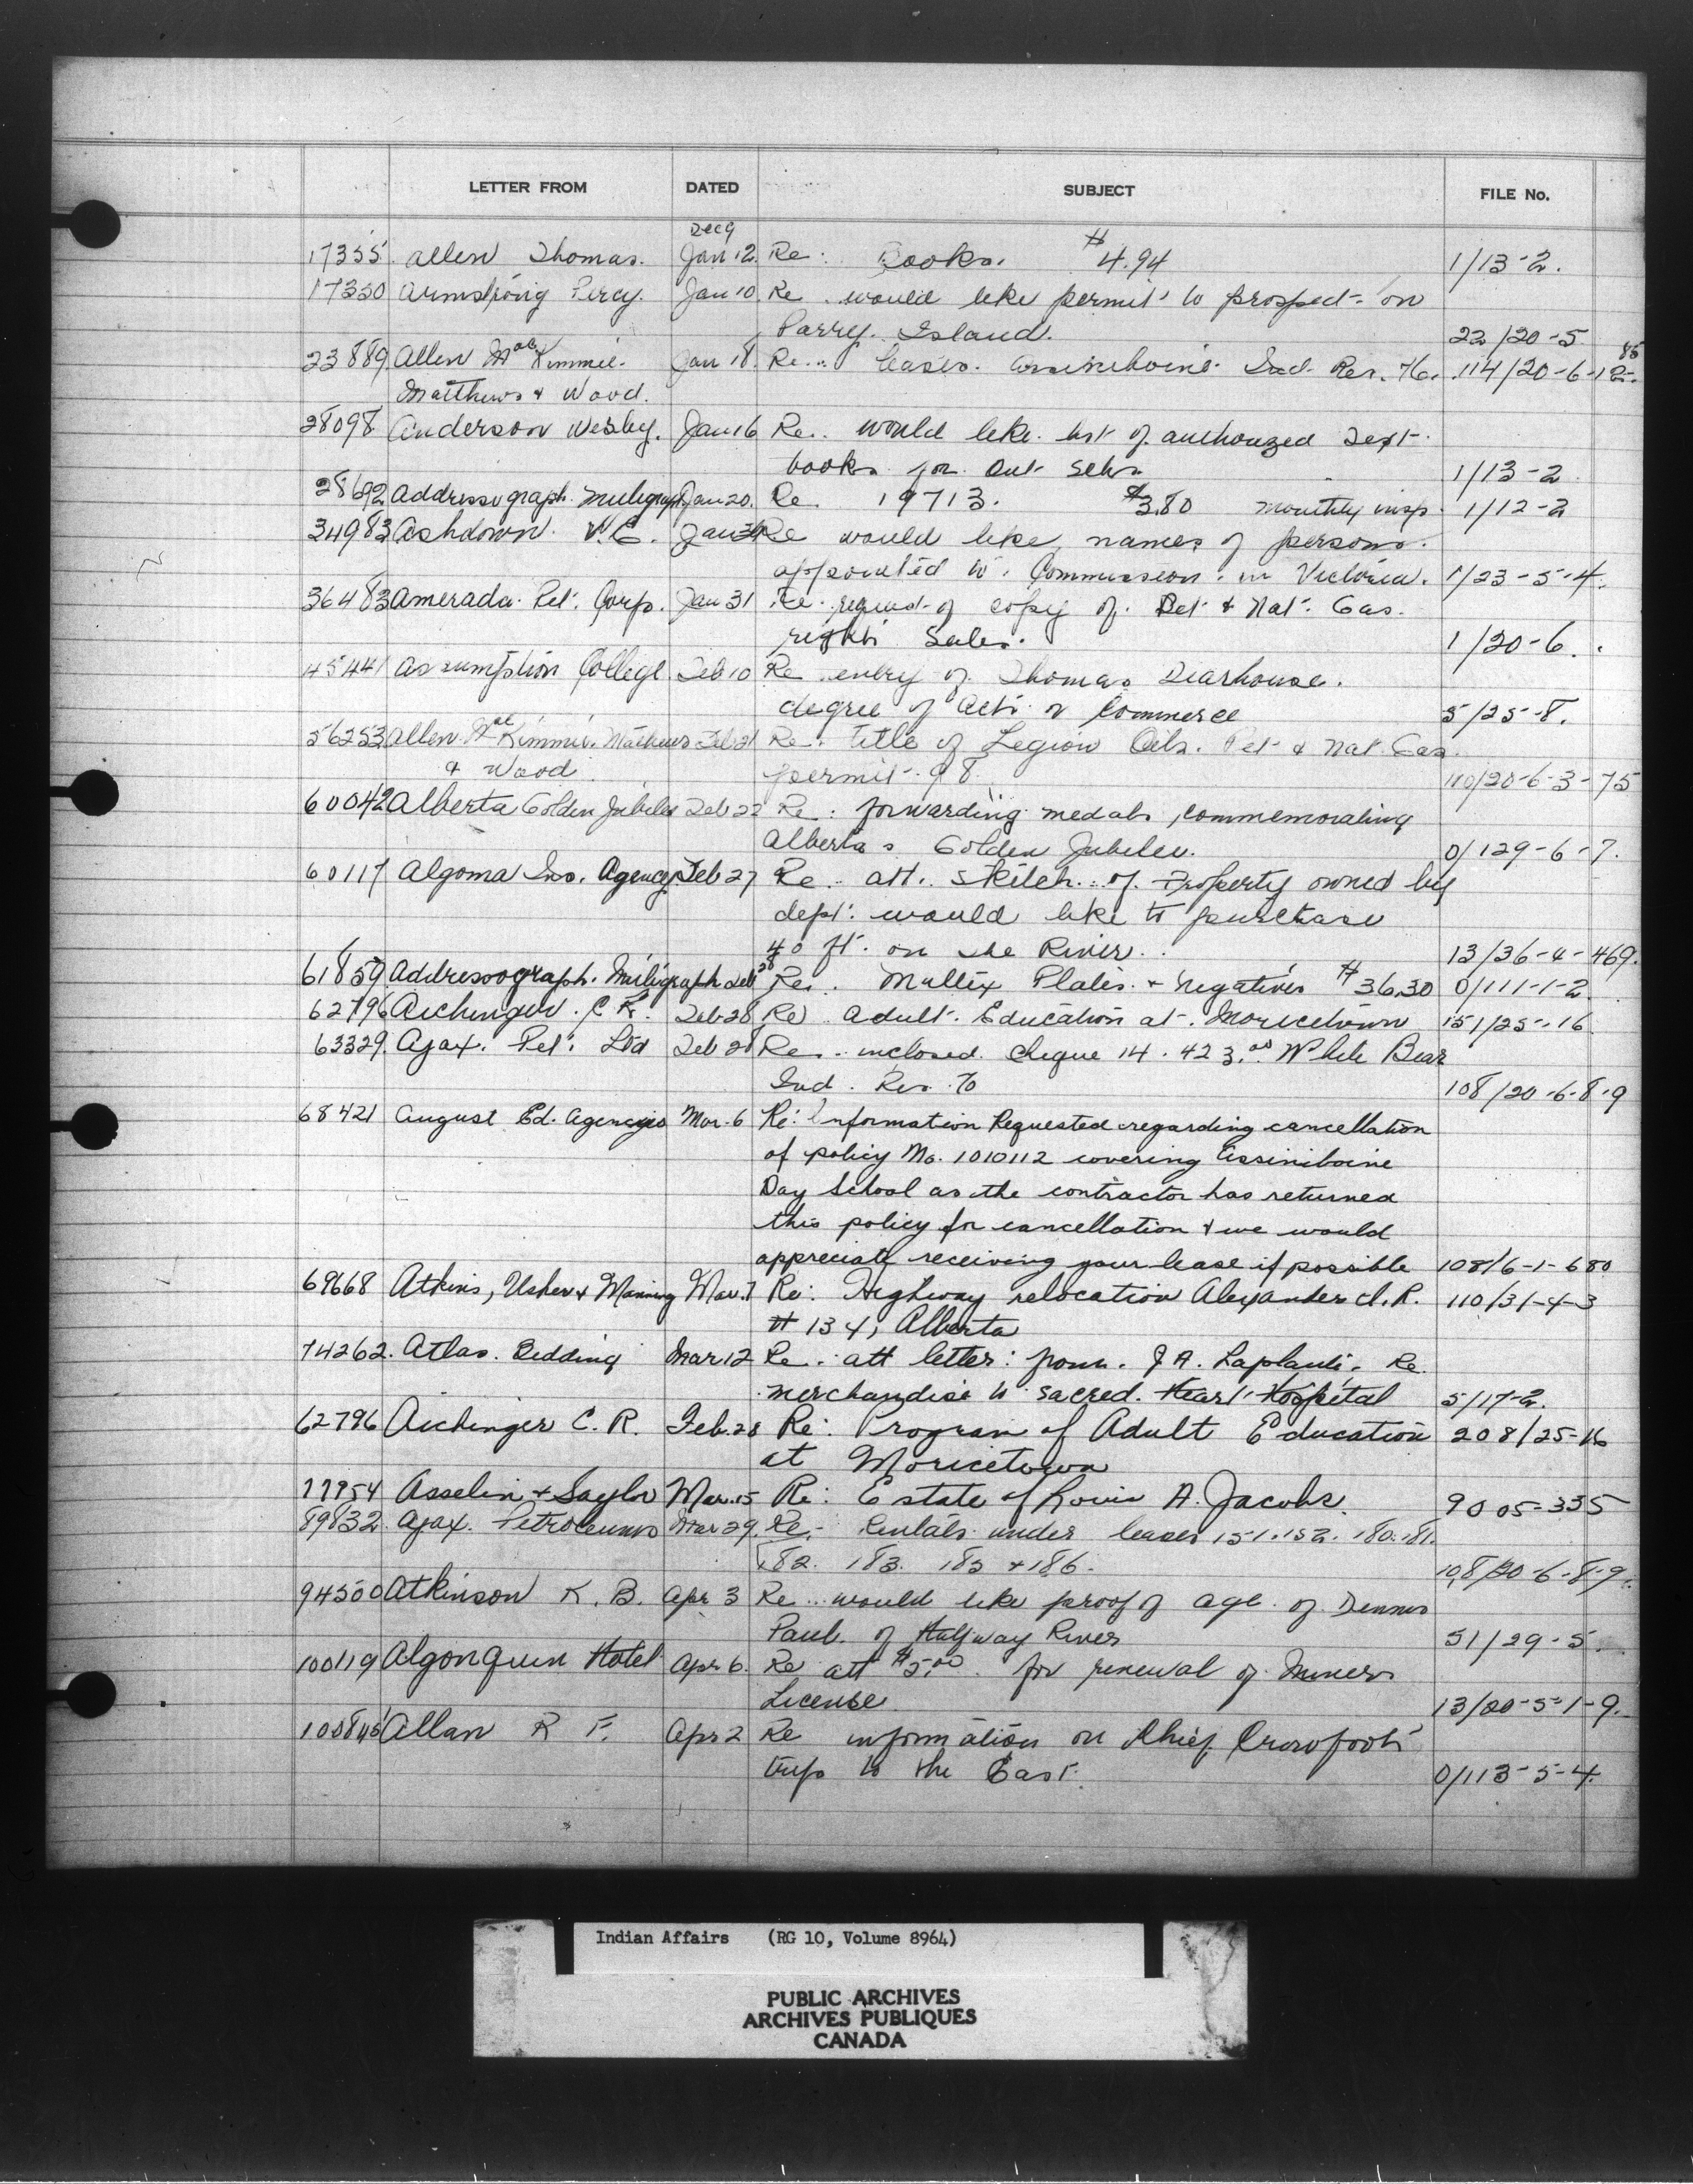 LETTER FROM DATED SUBJECT FILE No.
Dec 9
17355 Allen Thomas. Jan 12. Re: Books. #4.94 1/13-2.
17330 Armstrong Percy. Jan 10 Re. would like permit to prospect on
Parry Island. 22/20-5
23889 Allen MacKimmie. Jan 18. Re. leases. Assiniboine Ind. Res. 76. 114/20-6-12- 85
Matthews & Wood.
28098 Anderson Wesley. Jan 16 Re. would like list of authorized Text
books for Ont Schs. 1/13-2
28692 Addressograph Multigraph Jan 20. Re. 19713. $3.80 monthly insp. 1/12-2
34983 Ashdown. V.E. Jan 30 Re would like names of persons
appointed to Commission in Victoria. 1/23-5-4.
36483 Amerada Pet. Corp. Jan 31 Re request of copy of Pet & Nat. Gas.
rights Sales. 1/20-6.
45441 Assumption College Feb 10 Re entry of Thomas Dearhouse.
degree of Arts or Commerce 5/25-8.
56253 Allen MacKimmie. Mathews Feb 21 Re. Title of Legion Oils. Pet & Nat Gas.
& Wood permit 98. 110/20-6-3-75
60042 Alberta Golden Jubilee Feb 22 Re: forwarding medals, commemorating
Albertas Golden Jubilee. 0/129-6-7.
60117 Algoma Ins. Agency Feb 27 Re. att. sketch of Property owned by
dept. would like to purchase
40 ft. on the River. 13/36-4-469.
61859 Addressograph. Multigraph Feb 28 Re. Multex Plates & negatives #36.30 0/111-1-2.
62796 Aichinger. C R. Feb 28 Re Adult Education at Moricetown 151/25-16
63329. Ajax. Pet. Ltd Feb 28 Re. inclosed cheque 14.423.00 White Bear
Ind. Res. 70 108/20-6-8-9
68421 August Ed. Agencies Mar. 6 Re: Information Requested regarding cancellation
of policy No. 1010112 covering Assiniboine
Day School as the contractor has returned
this policy for cancellation & we would
appreciate receiving your lease if possible 108/6-1-680
69668 Atkins, Usher & Manning Mar. 7 Re: Highway relocation Alexander I.R. 110/31-4-3
# 134, Alberta
74262. Atlas. Bedding Mar 12 Re. att letter from. J A. Laplante. Re
merchandise to Sacred. Heart Hospital 5/17-2.
62796 Aichinger C. R. Feb. 28 Re: Program of Adult Education 208/25-16
at Moricetown
77954 Asselin & Saylor Mar. 15 Re: Estate of Louis A. Jacobs. 9005-335
89832 Ajax. Petroleums Mar 29. Re. Rentals under leases 151.152. 180.181.
182. 183. 185 & 186. 108/20-6-8-9.
94500 Atkinson K. B. Apr 3 Re. would like proof of age of Dennis
Paul. of Halfway River 51/29-5.
100119 Algonquin Hotel Apr 6. Re att $5.00 for renewal of Miners
License 13/20-5-1-9.
100845 Allan R F. Apr 2 Re information on Chief Crowfoots
trips to the East. 0/113-5-4.
Indian Affairs (RG 10, Volume 8964)
PUBLIC ARCHIVES
ARCHIVES PUBLIQUES
CANADA